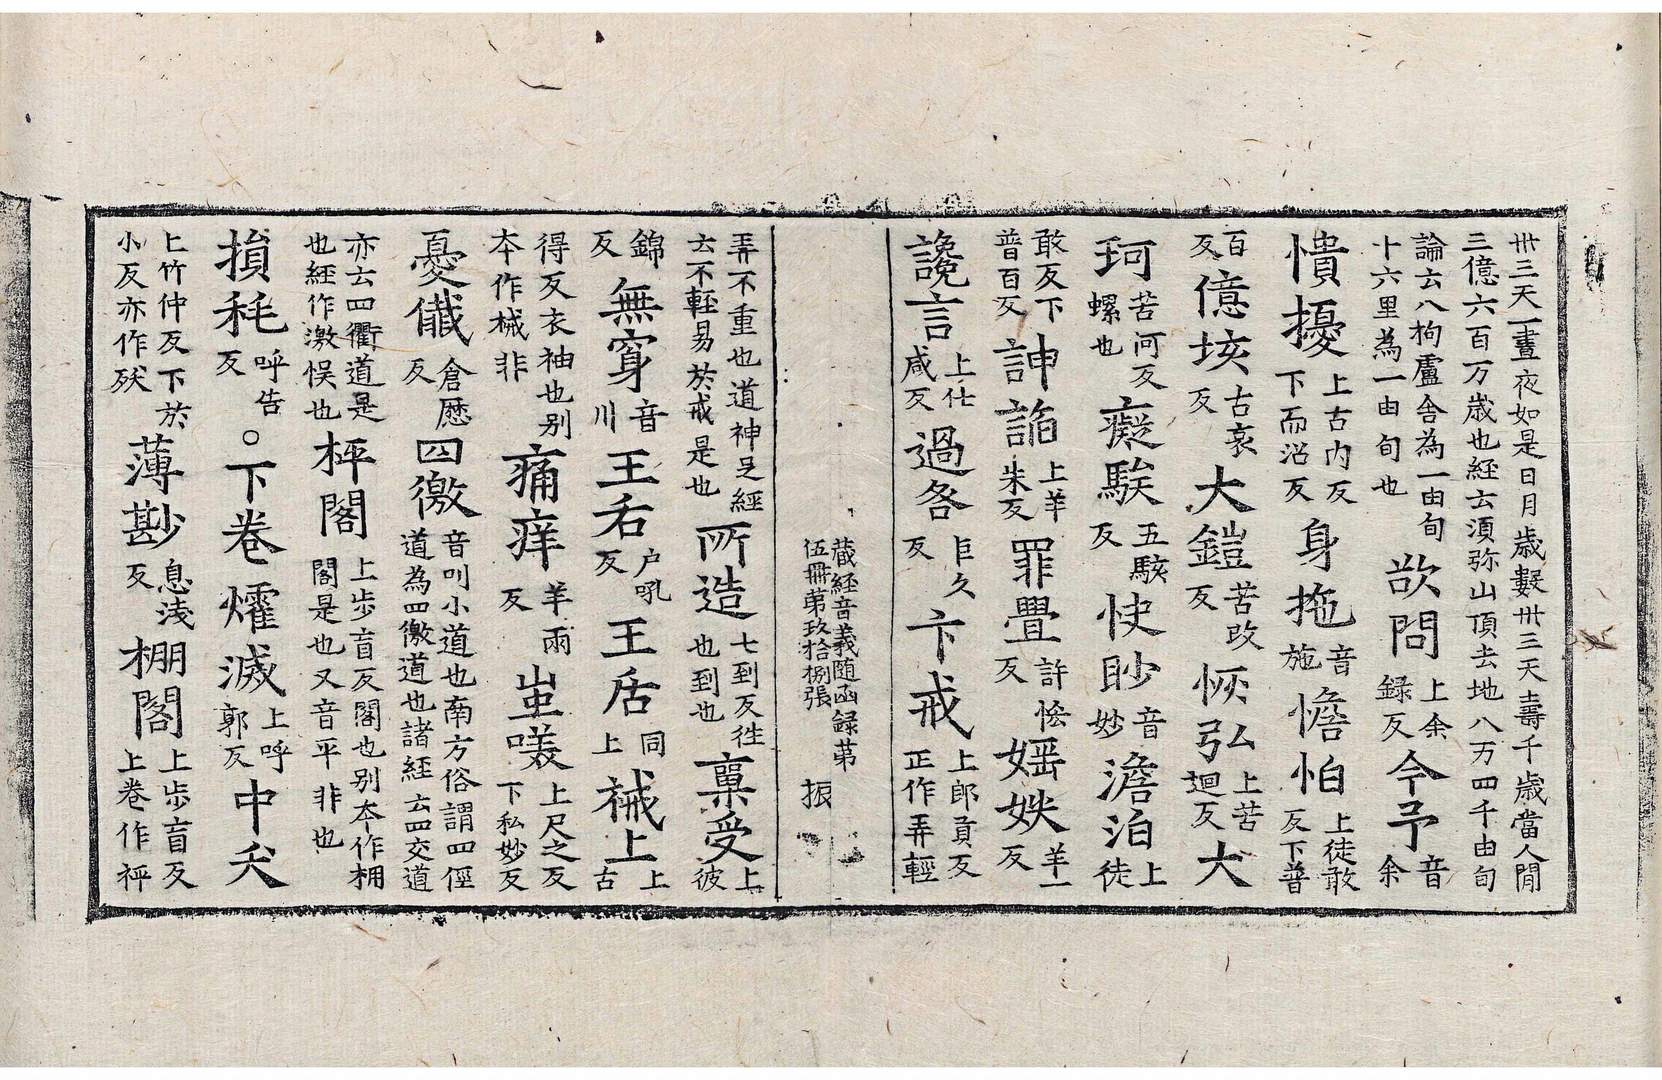 卅三天一晝夜如是日月歲數卅三天壽千歲當人閒
三億六百万歲也經云湏弥山頂去地八万四千由旬
論云八拘盧舍為一由旬十六里為一由旬也欲問上余録反今予音余
憒擾上古内反下而沼反身拖音施憺怕上徒敢反下普
百反億垓古哀反大鎧苦改反恢弘上苦迴反犬
珂苦河反螺也癡騃五駭反快眇音妙澹泊上徒
敢反下普百反訷謟上羊朱反罪疊許反媱妷羊一反
讒言上仕咸反過各巨久反卞戒上郎貢反正作弄輕
藏經音義随函録苐
伍冊苐玖拾捌張 振
弄不重也道神足經云不輊易於戒是也所造七到反徃也到也稟受上彼
錦反無穿音川王后户吼反王居同上裓上上古
得反衣袖也别本作械非痛痒羊兩反蚩上尺之反下私妙反
憂慽倉歷反四徼音叫小道也南方俗謂四俓道為四徼道也諸經云四交道
亦云四衢道是也經作激悮也枰閣上步盲反閣也别本作棚閣是也又音平非也
損秏呼告反○下卷燿滅上呼郭反中夭
上竹仲反下於小反亦作殀薄尠息浅反棚閣上步盲反上卷作枰